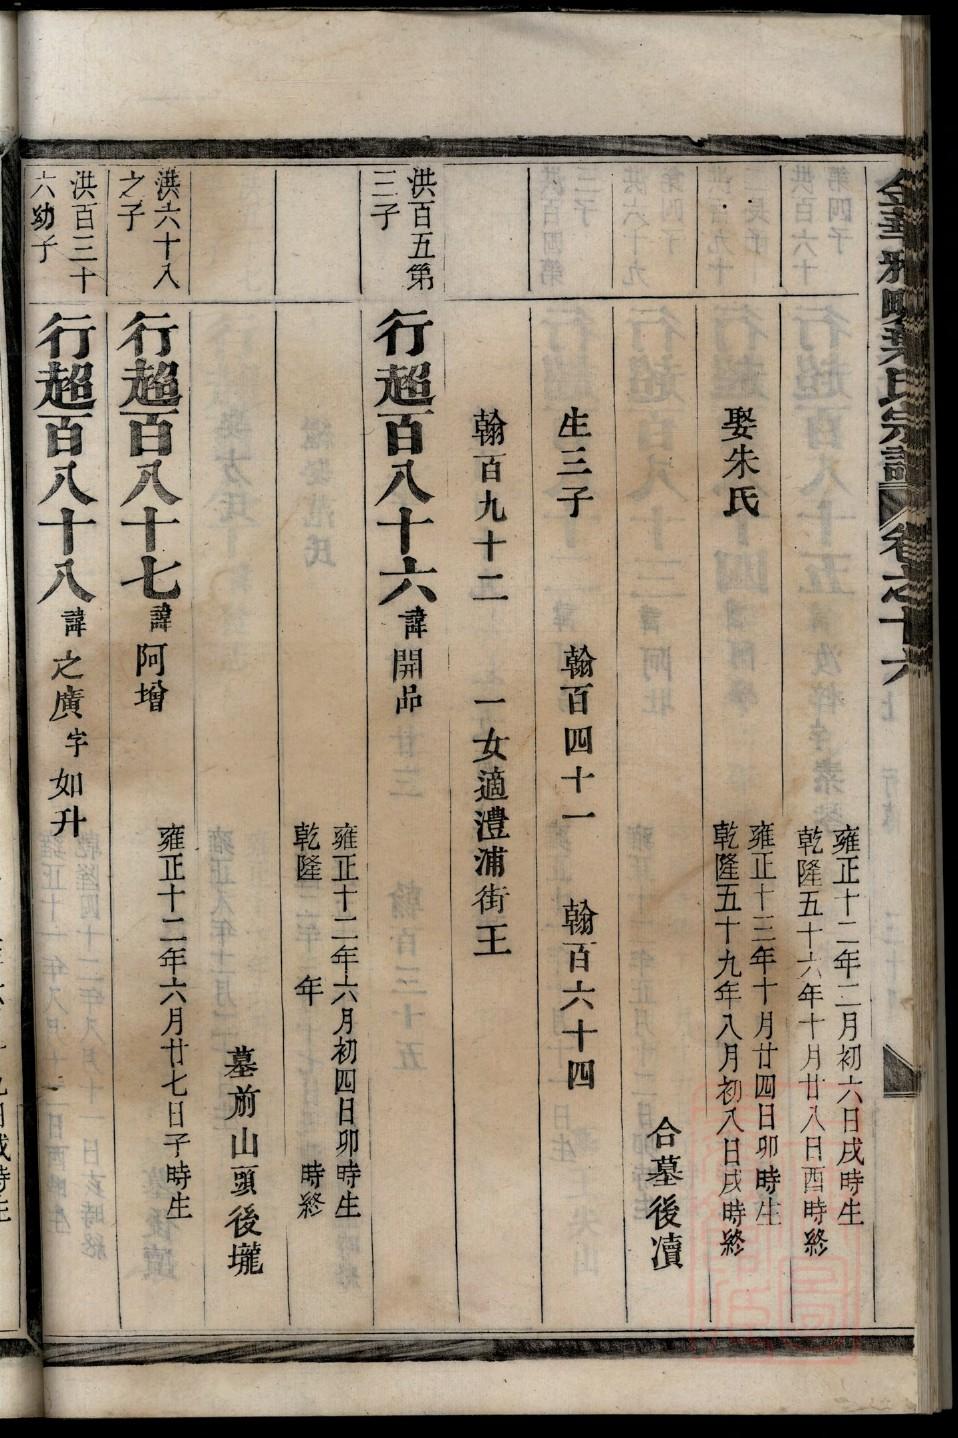 葉氏宗譜 卷之十六
雍正十二年二月初六日戌時生
乾隆五十六年十月廿八日酉時終
娶朱氏
雍正十三年十月廿四日卯時生
乾隆五十九年八月初八日戌時終
合墓後瀆
生三子 翰百四十一 翰百六十四
翰百九十二 一女適澧浦街王
洪百五第三子
行超百八十六 諱開品
雍正十二年六月初四日卯時生
乾隆 年 時終
墓前山頭後壠
洪六十八之子
行超百八十七 諱阿增
雍正十二年六月廿七日子時生
洪百三十六幼子
行超百八十八 諱之廣字如升